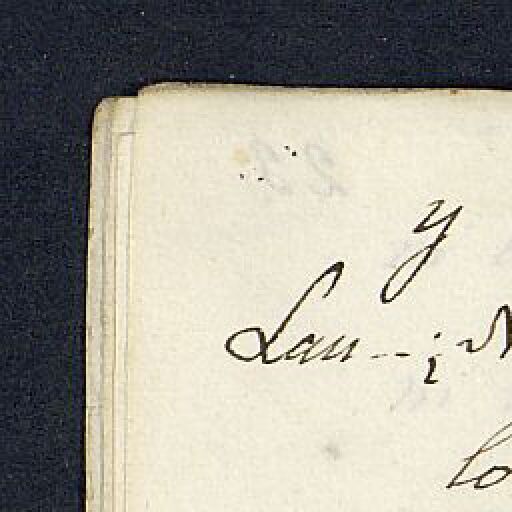 y
Lau--;
lo